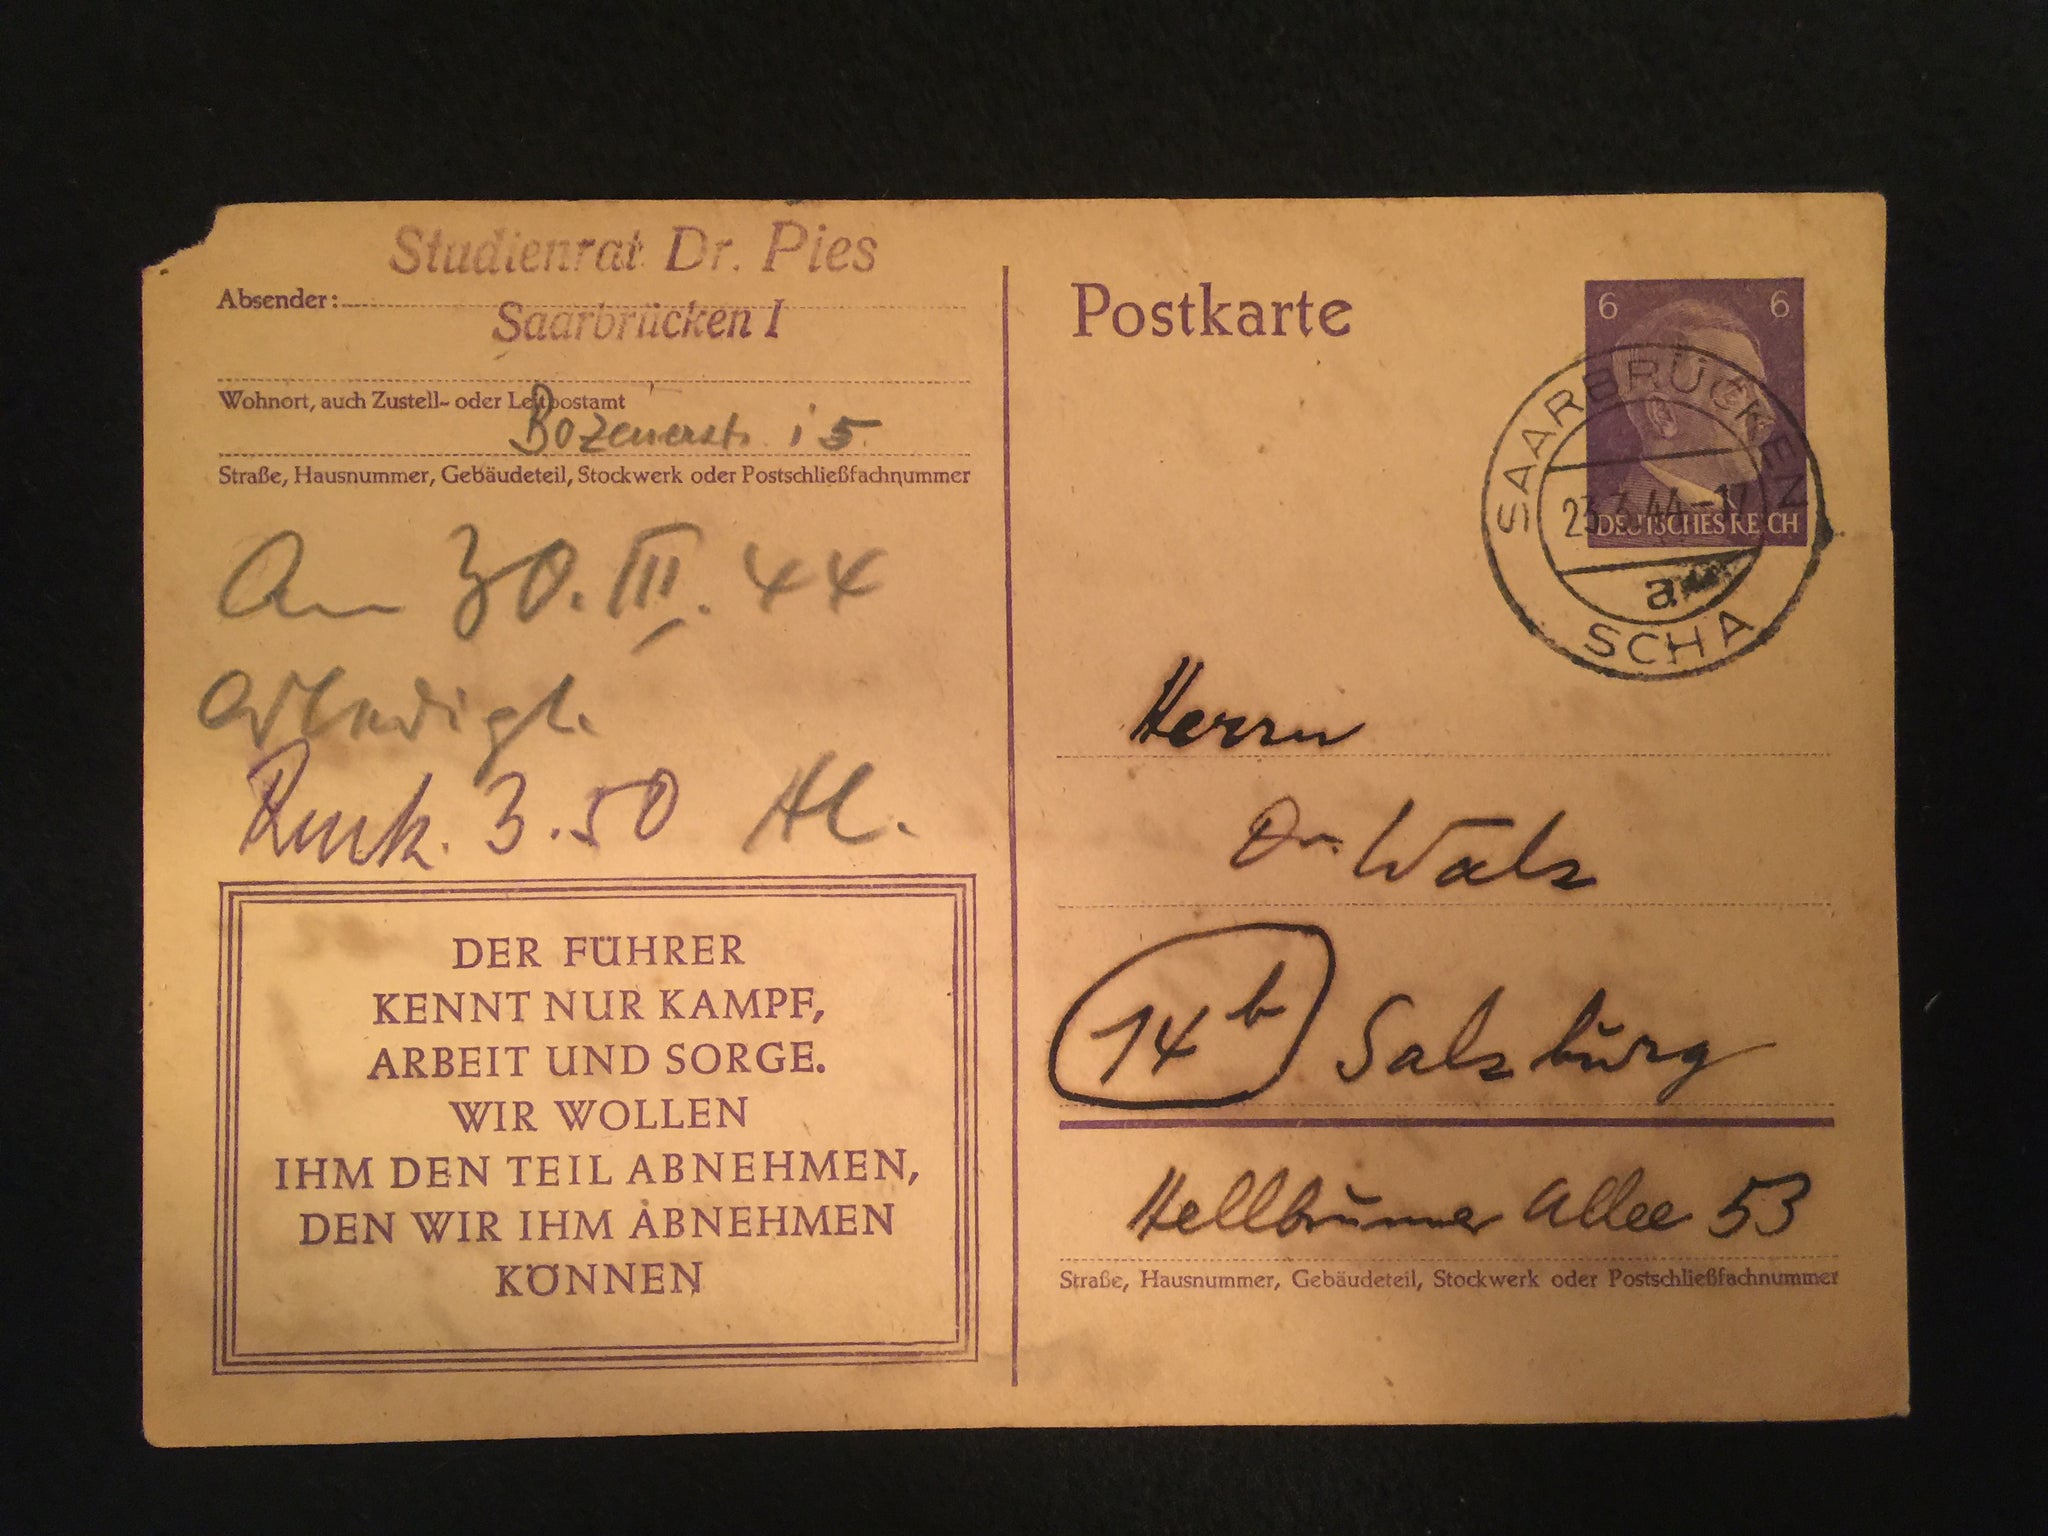 Studienrat Dr. Pies
Absender:
Saarbrücken I
Wohnort, auch Zustell- oder Leitpostamt
Bozenerstr. 15
Straße, Hausnummer, Gebäudeteil, Stockwerk oder Postschließfachnummer
Am 30. III. 44
erledigt.
3.50
DER FÜHRER
KENNT NUR KAMPF,
ARBEIT UND SORGE.
WIR WOLLEN
IHM DEN TEIL ABNEHMEN,
DEN WIR IHM ABNEHMEN
KÖNNEN
Postkarte
6 6
DEUTSCHES REICH
SAARBRÜCKEN
23.3.44-17
a
SCHA
Herrn
Dr. Walz
14b Salzburg
Hellbrunner Allee 53
Straße, Hausnummer, Gebäudeteil, Stockwerk oder Postschließfachnummer